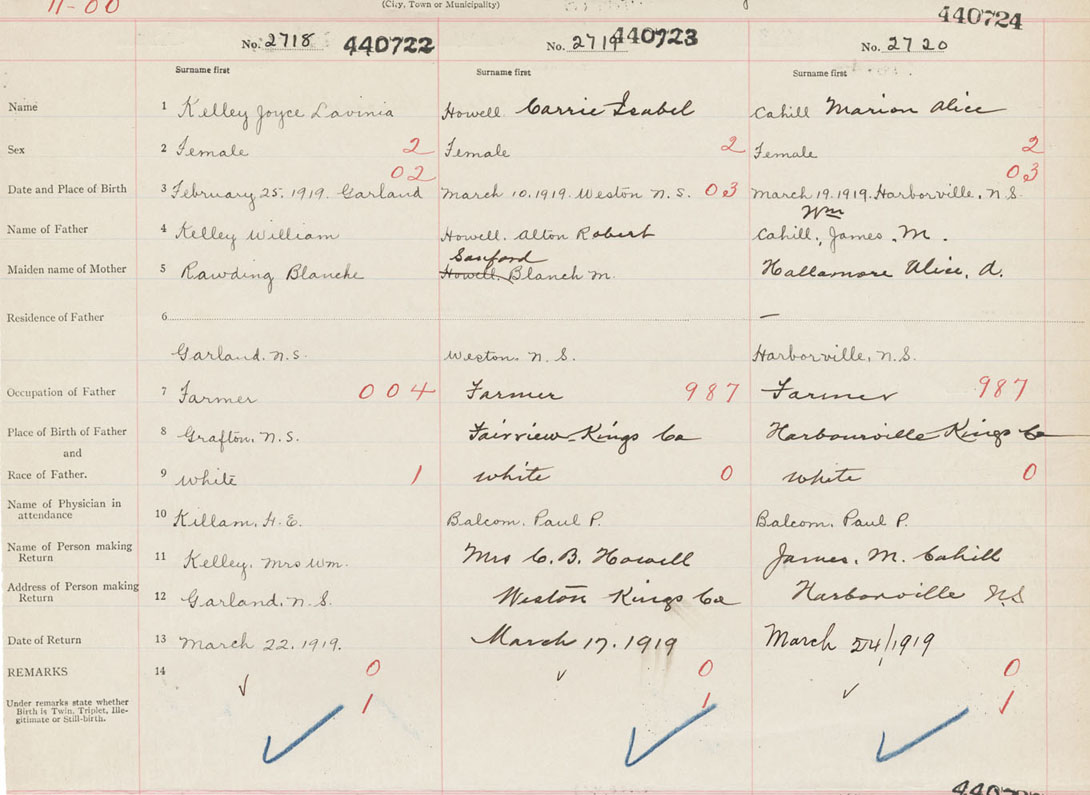 11-00
(City, Town or Municipality)
440724
No. 2718 440722 No. 2719 440723 No. 2720
Surname first Surname first Surname first
Name 1 Kelley Joyce Lavinia Howell Carrie Isabel Cahill Marion Alice
Sex 2 Female 2 Female 2 Female 2
02 03
Date and Place of Birth 3 February 25, 1919. Garland March 10, 1919. Weston N.S. 03 March 19, 1919. Harborville, N.S.
Wm
Name of Father 4 Kelley William Howell, Alton Robert Cahill, James. M.
Sanford
Maiden name of Mother 5 Rawding Blanche Howell, Blanch M. Hallamore Alice, A.
Residence of Father 6 —
Garland, N.S. Weston, N.S. Harborville, N.S.
Occupation of Father 7 Farmer 004 Farmer 987 Farmer 987
Place of Birth of Father 8 Grafton, N.S. Fairview Kings Co Harbourville Kings Co
and
Race of Father. 9 White 1 White 0 White 0
Name of Physician in
attendance 10 Killam, H.E. Balcom, Paul P. Balcom, Paul P.
Name of Person making
Return 11 Kelley, Mrs Wm. Mrs C. B. Howell James. M. Cahill
Address of Person making
Return 12 Garland, N.S. Weston Kings Co Harborville N.S
Date of Return 13 March 22, 1919. March 17, 1919 March 24/1919
REMARKS 14 0 0 0
Under remarks state whether
Birth is Twin, Triplet, Ille-
gitimate or Still-birth. 1 1 1